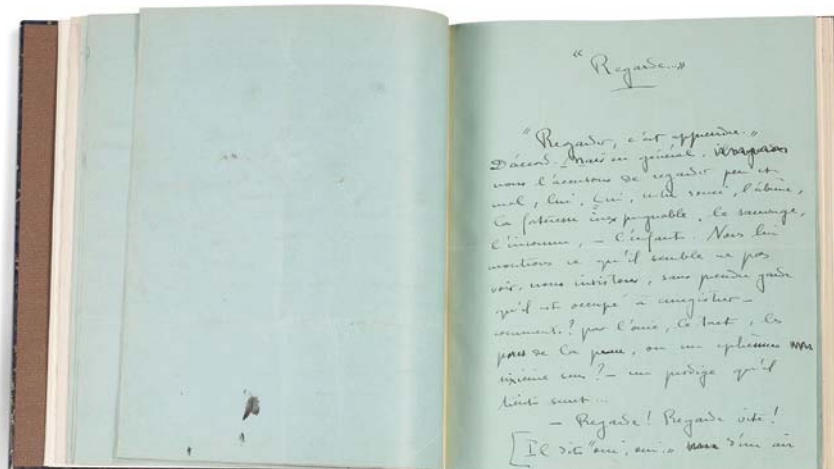 "Regarde..."
"Regarder, c'est apprendre."
D'accord. Mais en général,
nous l'accusons de regarder peu et
mal, lui, lui, notre souci, l'abîme,
la forteresse inexpugnable, le sauvage,
l'inconnu, — l'enfant. Nous lui
montrons ce qu'il semble ne pas
voir, nous insistons, sans prendre garde
qu'il est occupé à enregistrer —
comment? par l'ouïe, le tact, les
pores de la peau, ou un
sixième sens? — un prodige qu'il
tient
— Regarde! Regarde vite!
[Il dit "oui, oui" d'un air